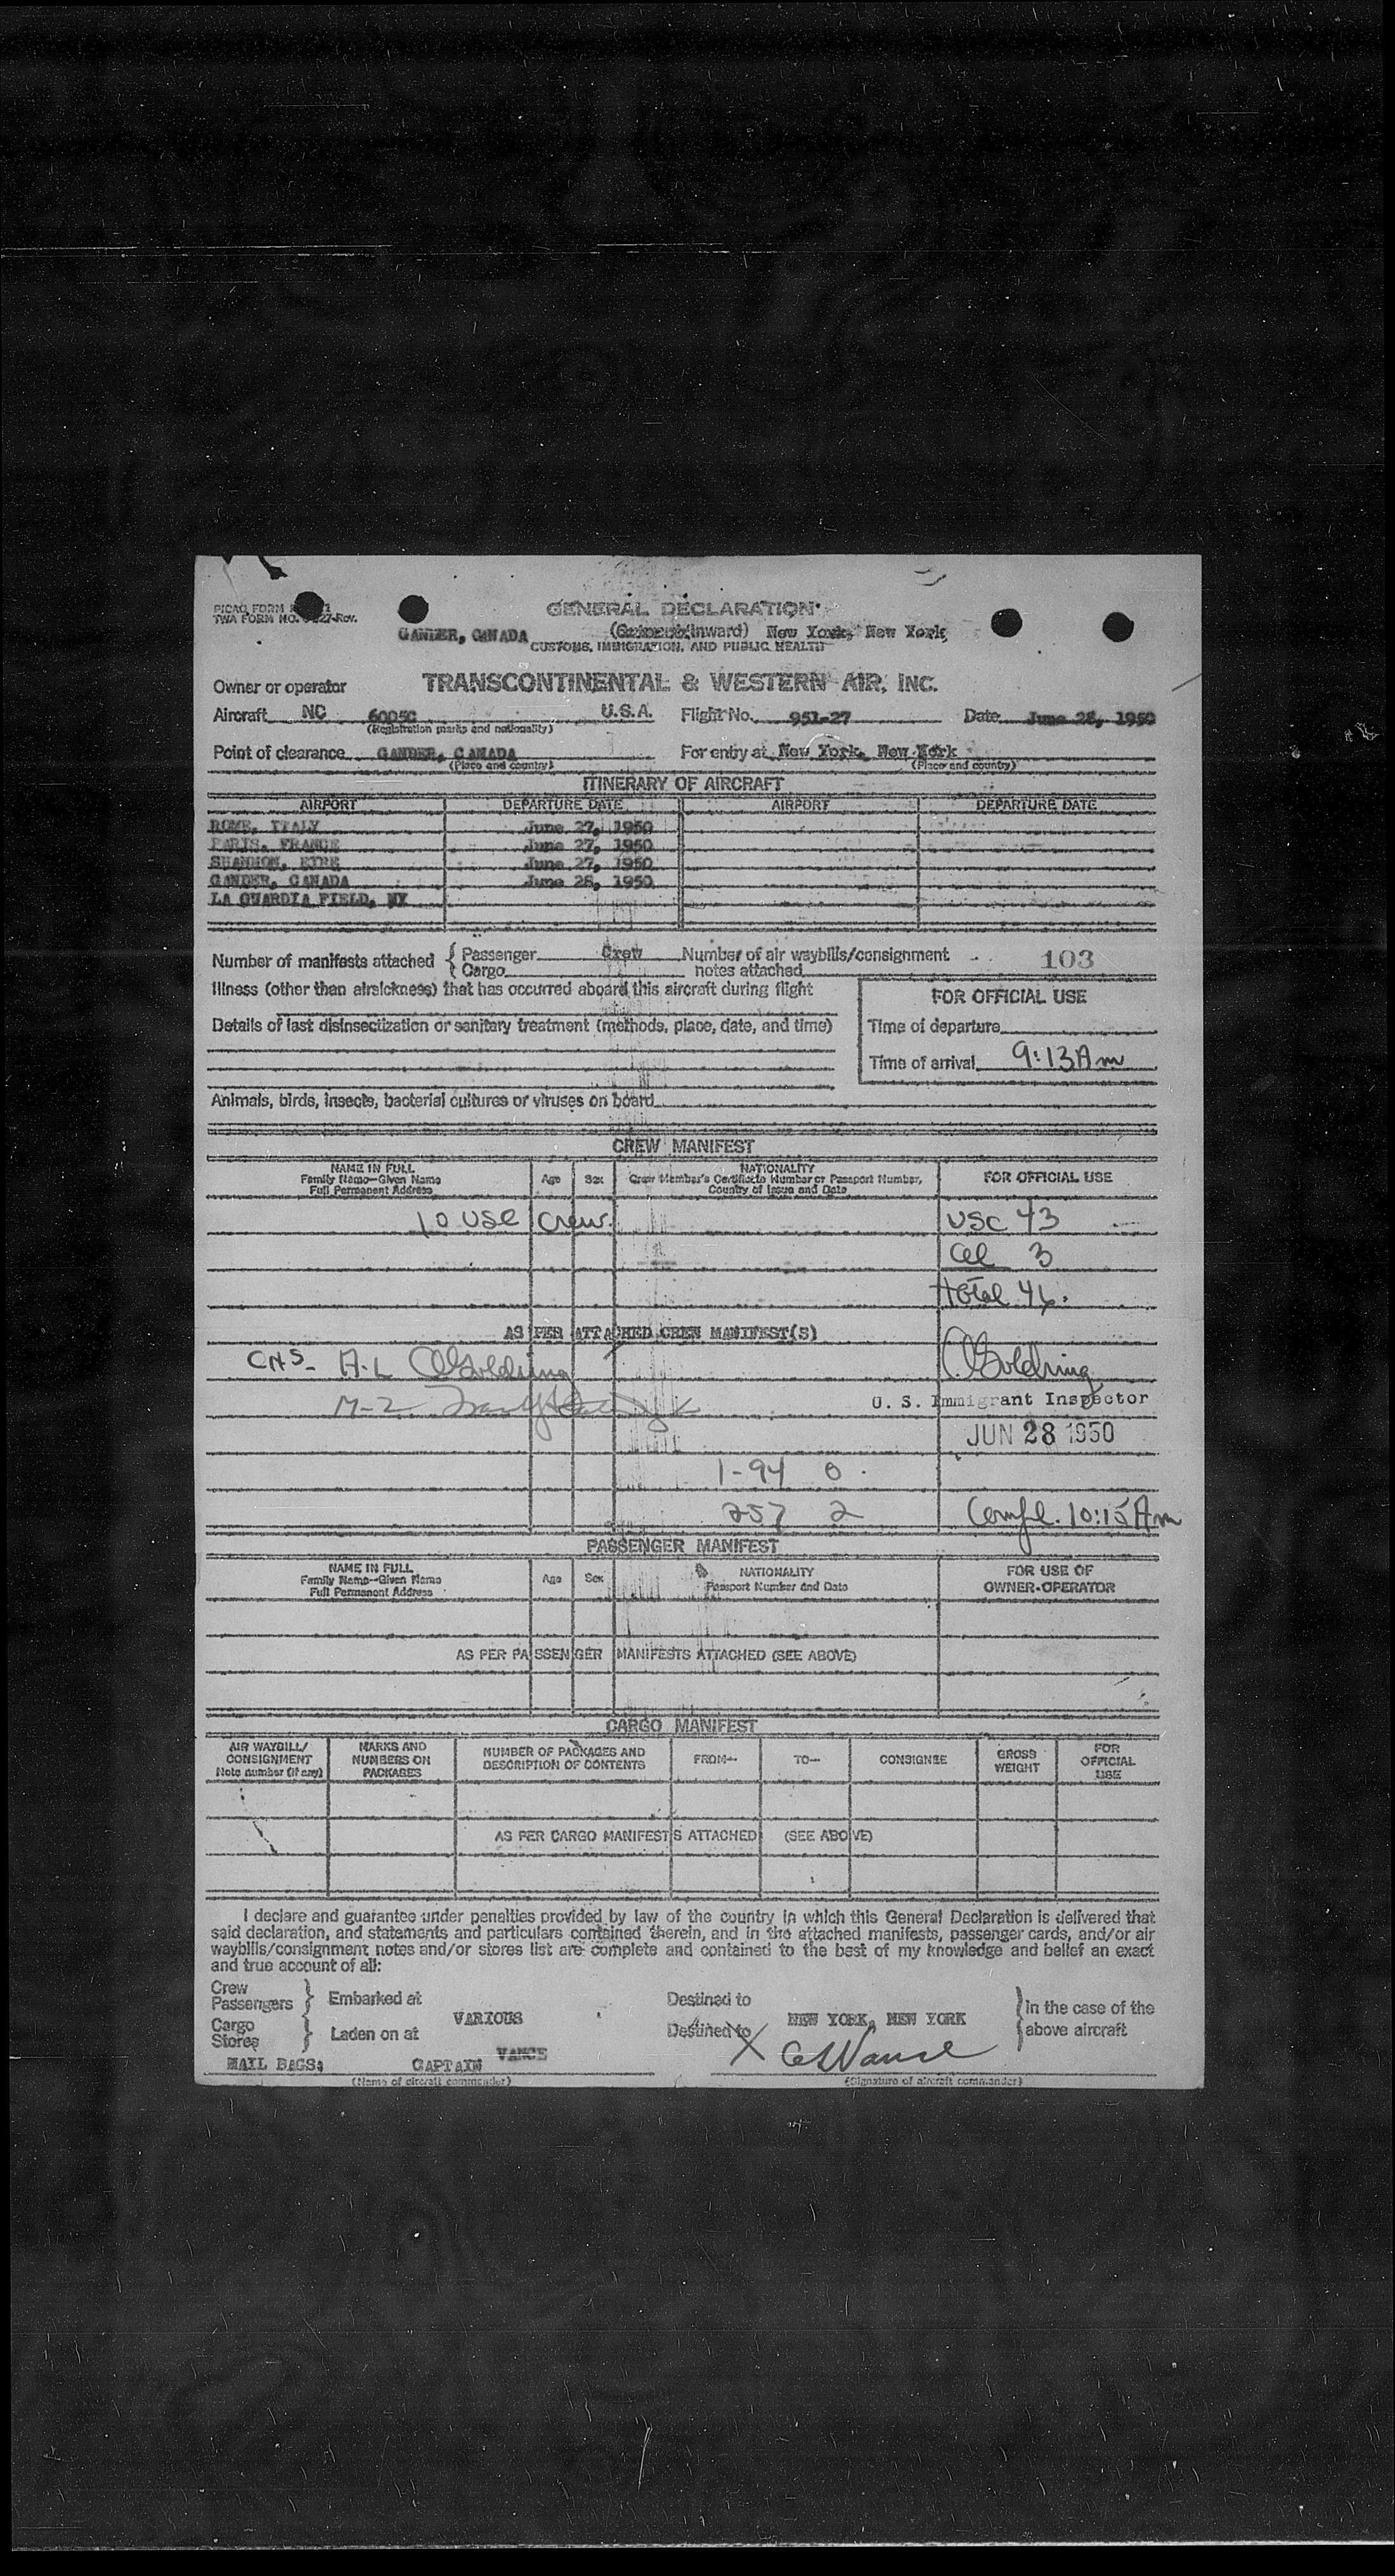 PICAO FORM
TWA FORM NO. 27-Rev.
GENERAL DECLARATION
GANDER, CANADA (Inward) New York, New York
CUSTOMS, IMMIGRATION, AND PUBLIC HEALTH
Owner or operator TRANSCONTINENTAL & WESTERN AIR, INC.
Aircraft NC 6005C U.S.A. Flight No. 951-27 Date June 28, 1950
(Registration marks and nationality)
Point of clearance GANDER, CANADA For entry at New York, New York
(Place and country) (Place and country)
ITINERARY OF AIRCRAFT
AIRPORT DEPARTURE DATE AIRPORT DEPARTURE DATE
ROME, ITALY June 27, 1950
PARIS, FRANCE June 27, 1950
SHANNON, EIRE June 27, 1950
GANDER, CANADA June 28, 1950
LA GUARDIA FIELD, NY
Number of manifests attached { Passenger Crew Number of air waybills/consignment 103
Cargo notes attached
Illness (other than airsickness) that has occurred aboard this aircraft during flight
FOR OFFICIAL USE
Details of last disinsectization or sanitary treatment (methods, place, date, and time)
Time of departure
Time of arrival 9:13 Am
Animals, birds, insects, bacterial cultures or viruses on board
CREW MANIFEST
NAME IN FULL
Family Name—Given Name
Full Permanent Address
Age Sex
NATIONALITY
Crew Member's Certificate Number or Passport Number,
Country of Issue and Date
FOR OFFICIAL USE
10 USC Crew. USC 43
al 3
total 46.
AS PER ATTACHED CREW MANIFEST(S)
A-L Goldring Goldring
M-2
U. S. Immigrant Inspector
JUN 28 1950
1-94 0
257 2 Compl. 10:15 Am
PASSENGER MANIFEST
NAME IN FULL
Family Name—Given Name
Full Permanent Address
Age Sex
NATIONALITY
Passport Number and Date
FOR USE OF
OWNER-OPERATOR
AS PER PASSENGER MANIFESTS ATTACHED (SEE ABOVE)
CARGO MANIFEST
AIR WAYBILL/
CONSIGNMENT
Note number (if any)
MARKS AND
NUMBERS ON
PACKAGES
NUMBER OF PACKAGES AND
DESCRIPTION OF CONTENTS
FROM— TO— CONSIGNEE
GROSS
WEIGHT
FOR
OFFICIAL
USE
AS PER CARGO MANIFESTS ATTACHED (SEE ABOVE)
I declare and guarantee under penalties provided by law of the country in which this General Declaration is delivered that
said declaration, and statements and particulars contained therein, and in the attached manifests, passenger cards, and/or air
waybills/consignment notes and/or stores list are complete and contained to the best of my knowledge and belief an exact
and true account of all:
Crew
Passengers } Embarked at Destined to } In the case of the
VARIOUS NEW YORK, NEW YORK
Cargo
Stores } Laden on at Destined to above aircraft
MAIL BAGS: CAPTAIN VANCE X
(Name of aircraft commander) (Signature of aircraft commander)